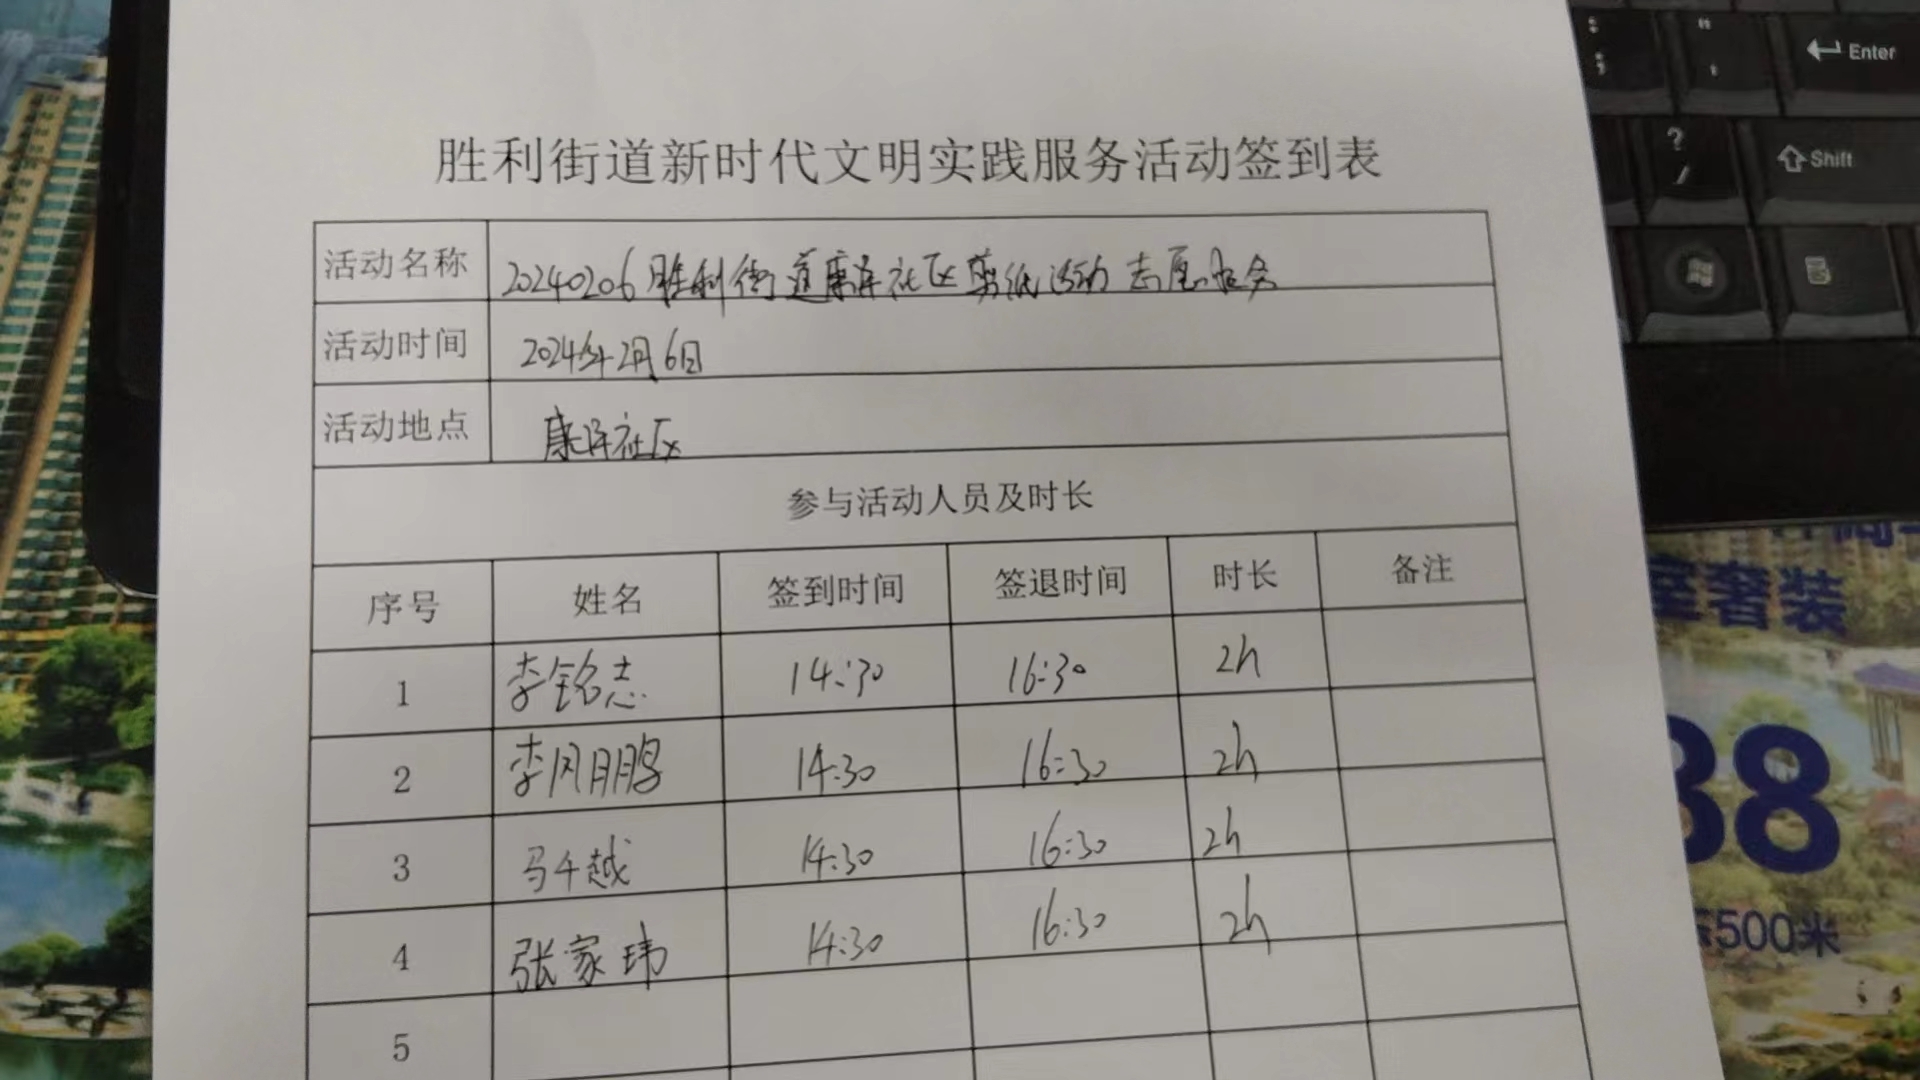 胜利街道新时代文明实践服务活动签到表
活动名称 20240206胜利街道康泽社区剪纸活动志愿服务
活动时间 2024年2月6日
活动地点 康泽社区
参与活动人员及时长
序号 姓名 签到时间 签退时间 时长 备注
1 李铭志 14:30 16:30 2h
2 李风鹏 14:30 16:30 2h
3 马千越 14:30 16:30 2h
4 张家玮 14:30 16:30 2h
5
Enter
Shift
?
/
奢装
88
500米